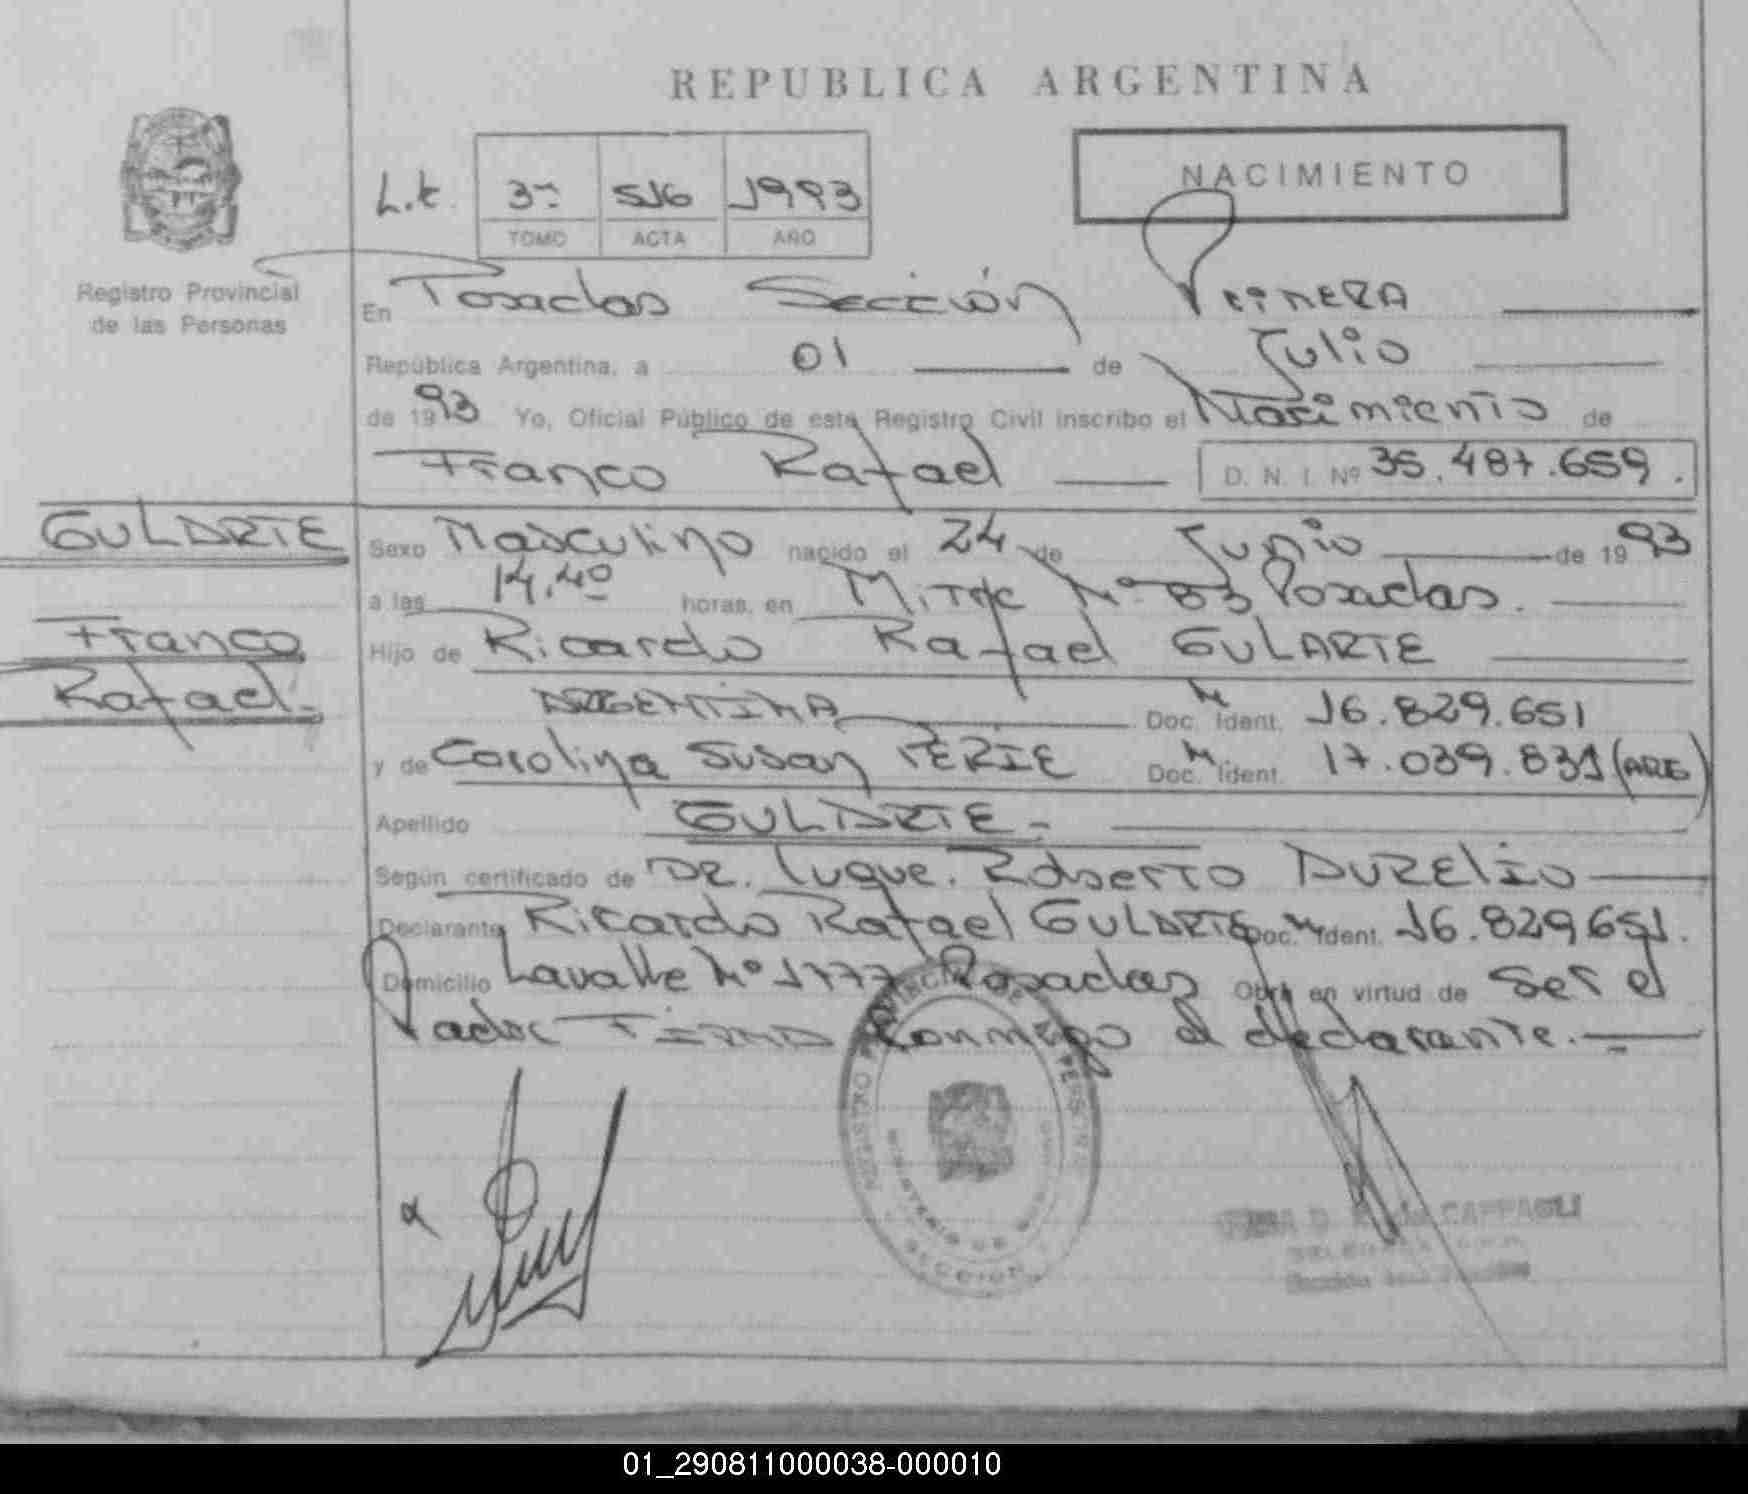 REPUBLICA ARGENTINA
NACIMIENTO
L.E. 3º 516 1993
TOMO ACTA AÑO
Registro Provincial
de las Personas
En Posadas Sección Primera
República Argentina, a 01 de Julio
de 1993 Yo, Oficial Público de este Registro Civil inscribo el Nacimiento de
Franco Rafael D. N. I. Nº 35.487.659.
GULARTE
Franco
Rafael.-
Sexo Masculino nacido el 24 de Junio de 1993
a las 14.40 horas, en Mitre Nº 83 Posadas.
Hijo de Ricardo Rafael GULARTE
ARGENTINA Doc. Ident. M 16.829.651
y de Carolina Susan PERIE Doc. Ident. M 17.039.831 (ARG)
Apellido GULARTE.-
Según certificado de DR. Luque. Roberto AURELIO
Declarante Ricardo Rafael GULARTE Doc. M Ident. 16.829651.
Domicilio Lavalle Nº 1777 Posadas Obra en virtud de ser el
Padre FIRMA conmigo el declarante.-
SECCION
CAFFAGLI
01_290811000038-000010